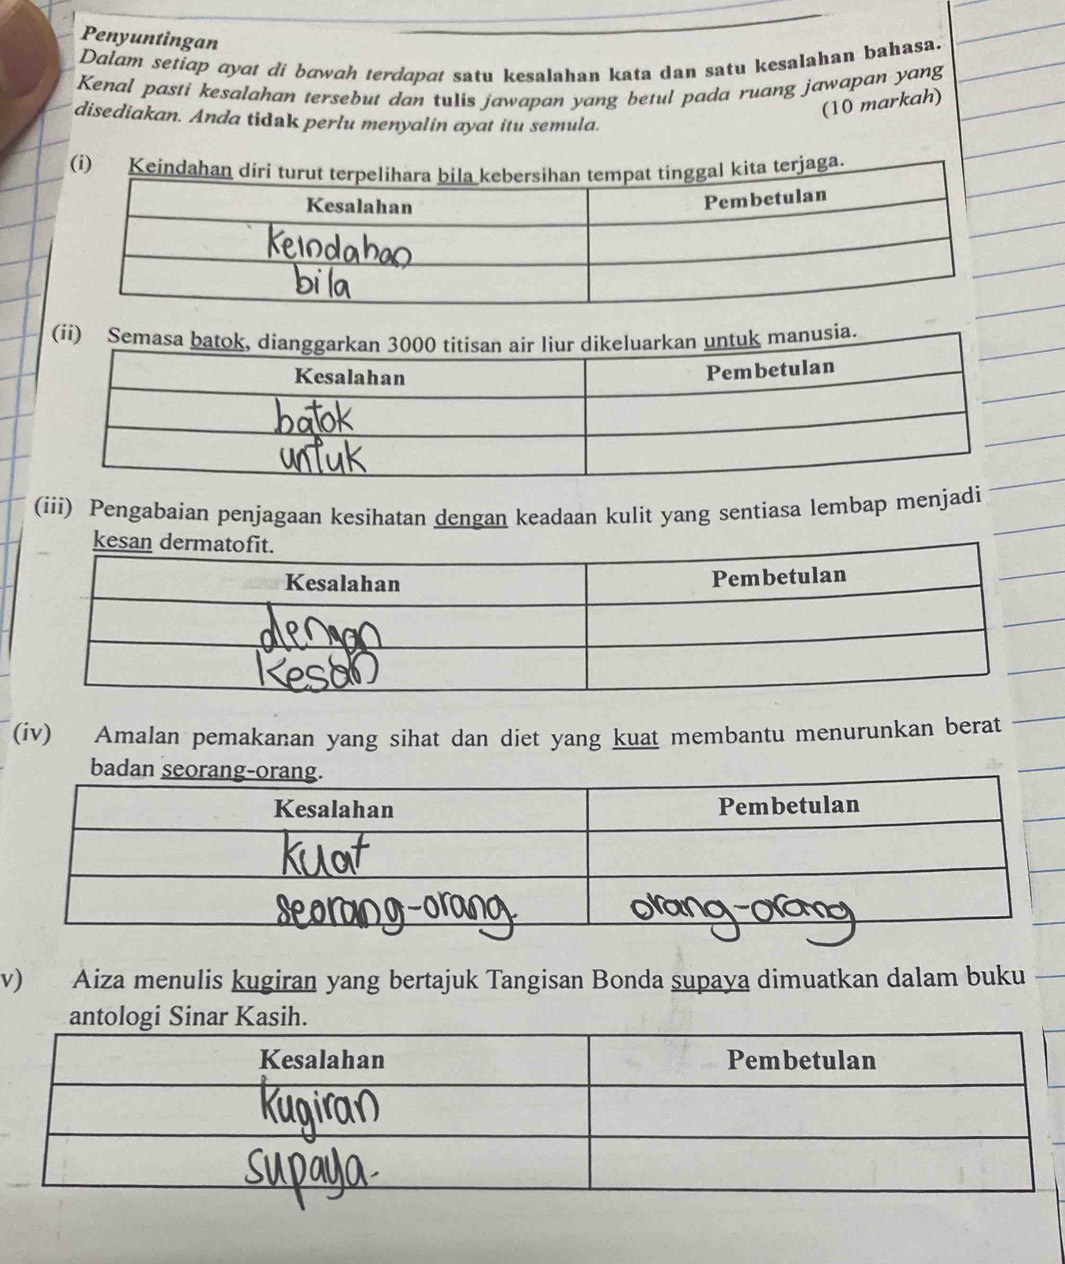 Penyuntingan
Dalam setiap ayat di bawah terdapat satu kesalahan kata dan satu kesalahan bahasa.
Kenal pasti kesalahan tersebut dan tulis jawapan yang betul pada ruang jawapan yang
disediakan. Anda tidak perlu menyalin ayat itu semula.
(10 markah)
(i) Keindahan diri turut terpelihara bila kebersihan tempat tinggal kita terjaga.
Kesalahan Pembetulan
Keindahan
bila
(ii) Semasa batok, dianggarkan 3000 titisan air liur dikeluarkan untuk manusia.
Kesalahan Pembetulan
batok
untuk
(iii) Pengabaian penjagaan kesihatan dengan keadaan kulit yang sentiasa lembap menjadi
kesan dermatofit.
Kesalahan Pembetulan
dengan
Kesan
(iv) Amalan pemakanan yang sihat dan diet yang kuat membantu menurunkan berat
badan seorang-orang.
Kesalahan Pembetulan
Kuat
seorang-orang. orang-orang
v) Aiza menulis kugiran yang bertajuk Tangisan Bonda supaya dimuatkan dalam buku
antologi Sinar Kasih.
Kesalahan Pembetulan
Kugiran
Supaya.